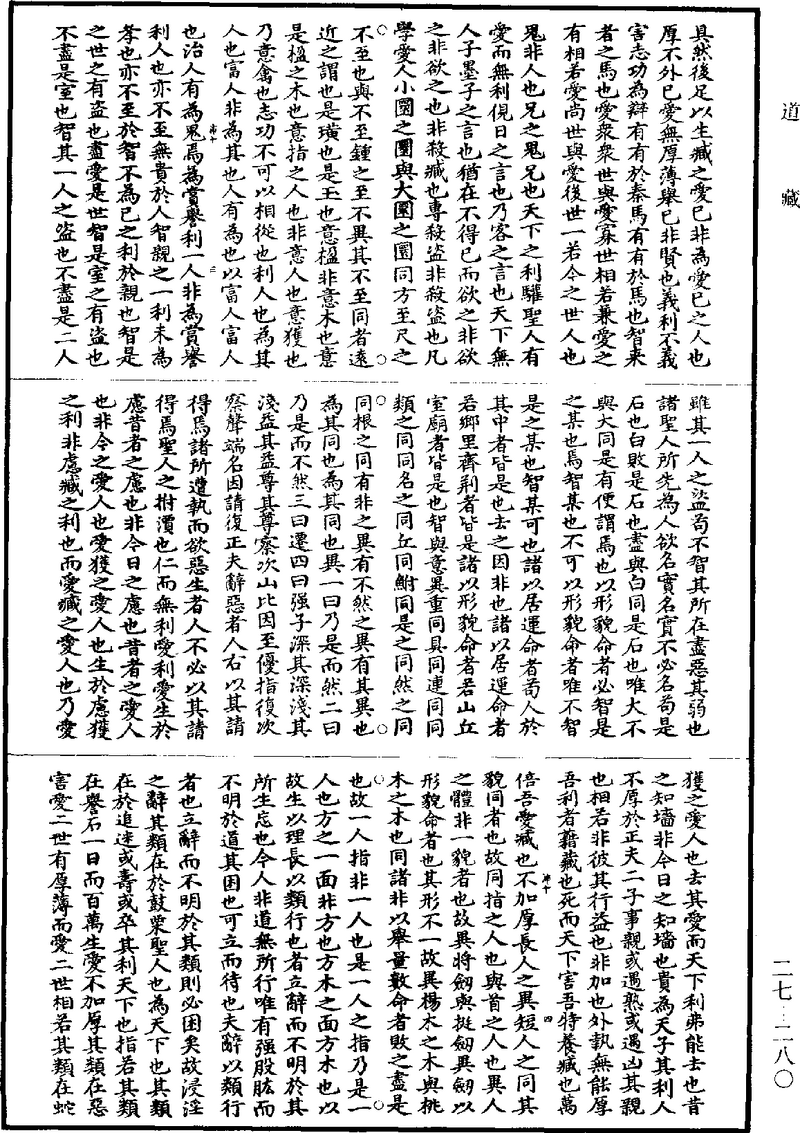 道藏
具然後足以生臧之愛已非為愛已之人也
厚不外已愛無厚薄舉已非賢也義利不義
害志功為辯有有於秦馬有有於馬也智来
者之馬也愛衆衆世與愛寡世相若兼愛之
有相若愛尚世與愛後世一若今之世人也
鬼非人也兄之鬼兄也天下之利驩聖人有
愛而無利俔日之言也乃客之言也天下無
人子墨子之言也猶在不得已而欲之非欲
之非欲之也非殺臧也專殺盜非殺盜也凡
學愛人小圜之圜與大圜之圜同方至尺之
不至也與不至鍾之至不異其不至同者遠
近之謂也是璜也是玉也意楹非意木也意
是楹之木也意指之人也非意人也意獲也
乃意禽也志功不可以相從也利人也為其
人也富人非為其也人有為也以富人富人
三
也治人有為鬼焉為賞譽利一人非為賞譽
利人也亦不至無貴於人智親之一利未為
孝也亦不至於智不為已之利於親也智是
之世之有盜也盡愛是世智是室之有盜也
不盡是室也智其一人之盜也不盡是二人
雖其一人之盜苟不智其所在盡惡其弱也
諸聖人所先為人欲名實名實不必名苟是
石也白敗是石也盡與白同是石也唯大不
與大同是有便謂焉也以形貌命者必智是
之某也焉智某也不可以形貌命者唯不智
是之某也智某可也諸以居運命者苟人於
其中者皆是也去之因非也諸以居運命者
若鄉里齊荊者皆是諸以形貌命者若山丘
室廟者皆是也智與意異重同具同連同同
類之同同名之同丘同鮒同是之同然之同
同根之同有非之異有不然之異有其異也
為其同也為其同也異一曰乃是而然二曰
乃是而不然三曰遷四曰强子深其深淺其
淺益其益尊其尊察次山比因至優指復次
察聲端名因請復正夫辭惡者人右以其請
得焉諸所遭執而欲惡生者人不必以其請
得焉聖人之拊也仁而無利愛利愛生於
慮昔者之慮也非今日之慮也昔者之愛人
也非今之愛人也愛獲之愛人也生於慮獲
之利非慮臧之利也而愛臧之愛人也乃愛
獲之愛人也去其愛而天下利弗能去也昔
之知墻非今日之知墻也貴為天子其利人
不厚於正夫二子事親或遇熟或遇凶其親
也相若非彼其行益也非加也外執無能厚
吾利者藉臧也死而天下害吾特養臧也萬
倍吾愛臧也不加厚長人之異短人之同其
四
貌同者也故同指之人也與首之人也異人
之體非一貌者也故異將劒與挺劒異劒以
形貌命者也其形不一故異楊木之木與桃
木之木也同諸非以舉量數命者敗之盡是
也故一人指非一人也是一人之指乃是一
人也方之一面非方也方木之面方木也以
故生以理長以類行也者立辭而不明於其
所生忘也今人非道無所行唯有强股肱而
不明於道其困也可立而待也夫辭以類行
者也立辭而不明於其類則必困矣故浸淫
之辭其類在於鼓栗聖人也為天下也其類
在於追迷或壽或卒其利天下也指若其類
在譽石一日而百萬生愛不加厚其類在惡
害愛二世有厚薄而愛二世相若其類在蛇
二七—二八〇